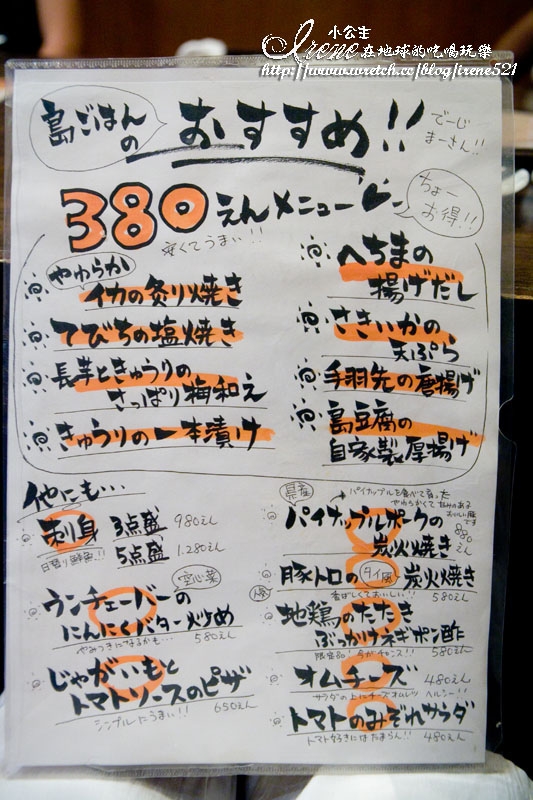 小公主
Irene在地球的吃喝玩樂
http://www.wretch.cc/blog/irene521
島ごはんの
おすすめ!!
でーじ
まーさん!!
380えんメニュー
安くてうまい!!
ちょー
お得!!
やわらか
イカの炙り焼き
てびちの塩焼き
長芋ときゅうりの
さっぱり梅和え
きゅうりの一本漬け
へちまの
揚げだし
さきいかの
天ぷら
手羽先の唐揚げ
島豆腐の
自家製厚揚げ
他にも…
刺身 3点盛 980えん
日替り鮮魚!!
5点盛 1.280えん
空心菜
ウンチェーバーの
にんにくバター炒め
やみつきになるかも… 580えん
じゃがいもと
トマトソースのピザ
シンプルだうまい!! 650えん
県産
パイナップルを食べて育った
やわらかくて
パイナップルポークの
炭火焼き
880えん
豚トロのタイ風炭火焼き
香ばしくておいしい!! 580えん
地鶏のたたき
ぶっかけネギポン酢
限定品!今がチャンス!! 580えん
オムチーズ 480えん
サラダの上にチーズオムレツ ヘルシー!!
トマトのみぞれサラダ
トマト好きにはたまらん!! 480えん